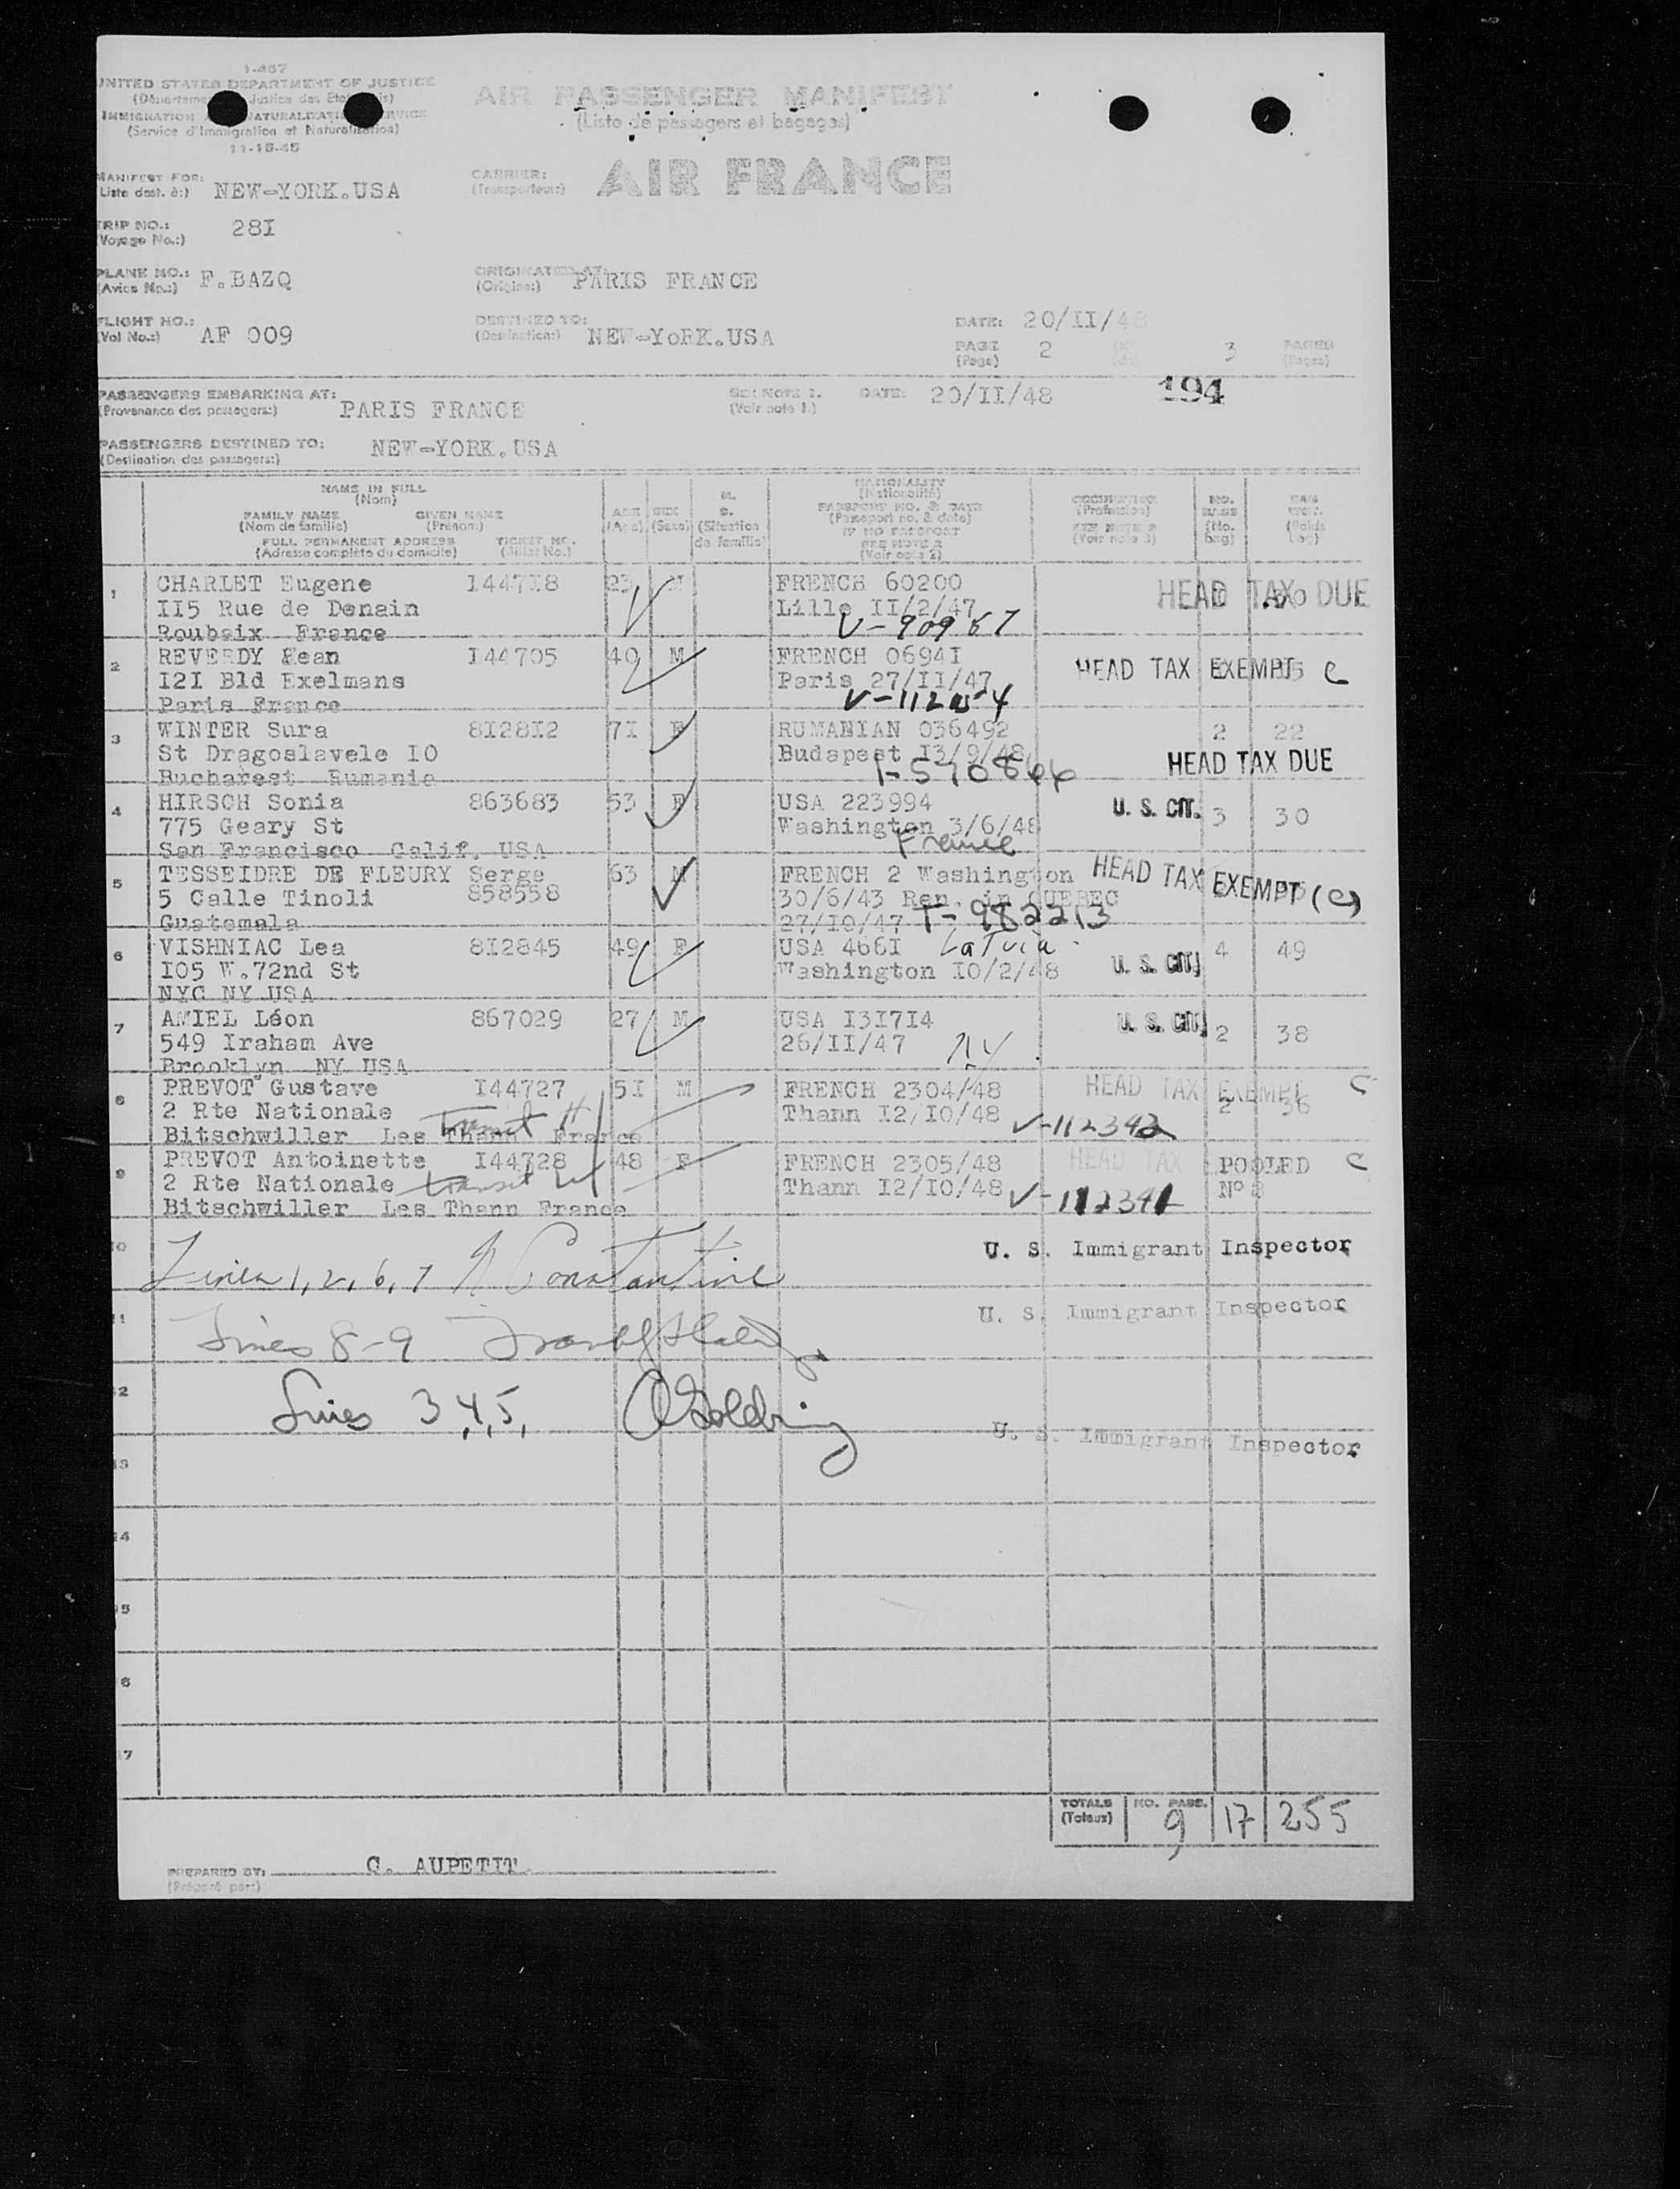 I-487
UNITED STATES DEPARTMENT OF JUSTICE
(Département Justice des Etats Unis)
IMMIGRATION NATURALIZATION SERVICE
(Service d'Immigration et Naturalisation)
11-15-45
AIR PASSENGER MANIFEST
(Liste de passagers et bagages)
MANIFEST FOR: NEW-YORK.USA
(Liste dest. à:)
CARRIER: AIR FRANCE
(Transporteur:)
TRIP NO.: 28I
(Voyage No.:)
PLANE NO.: F.BAZQ
(Avion No.:)
ORIGINATED AT: PARIS FRANCE
(Origine:)
FLIGHT NO.: AF 009
(Vol No.:)
DESTINED TO: NEW-YoRK.USA
(Destination:)
DATE: 20/II/48
PAGE 2 3 PAGES
(Page) (Pages)
PASSENGERS EMBARKING AT: PARIS FRANCE
(Provenance des passagers:)
SEE NOTE 1. DATE: 20/II/48 194
(Voir note 1.)
PASSENGERS DESTINED TO: NEW-YORK.USA
(Destination des passagers:)
NAME IN FULL
(Nom)
FAMILY NAME GIVEN NAME
(Nom de famille) (Prénom)
FULL PERMANENT ADDRESS TICKET NO.
(Adresse complète du domicile) (Billet No.)
AGE SEX M. S.
(Age) (Sexe) (Situation de famille)
NATIONALITY
(Nationalité)
PASSPORT NO. & DATE
(Passeport no. & date)
IF NO PASSPORT
SEE NOTE 2
(Voir note 2)
OCCUPATION
(Profession)
SEE NOTE 3
(Voir note 3)
NO. BAGS
(No. bag)
BAG WGT.
(Poids bag)
1 CHARLET Eugene I447I8 23 M FRENCH 60200 HEAD TAX DUE
II5 Rue de Denain Lille II/2/47
Roubaix France V-90967
2 REVERDY Jean I44705 40 M FRENCH 0694I HEAD TAX EXEMPT C
I2I Bld Exelmans Paris 27/II/47
Paris France
3 WINTER Sura 8I28I2 7I F RUMANIAN 036492 2 22
St Dragoslavele IO Budapest I3/9/48 HEAD TAX DUE
Bucharest Rumania
4 HIRSCH Sonia 863683 53 F USA 223994 U. S. CIT. 3 30
775 Geary St Washington 3/6/48
San Francisco Calif. USA France
5 TESSEIDRE DE FLEURY Serge 63 M FRENCH 2 Washington HEAD TAX EXEMPT (C)
5 Calle Tinoli 858558 30/6/43 Ren. in QUEBEC
Guatemala 27/I0/47 T-982213
6 VISHNIAC Lea 8I2845 49 F USA 466I Latvia 4 49
I05 W.72nd St Washington I0/2/48 U. S. CIT.
NYC NY USA
7 AMIEL Léon 867029 27 M USA I3I7I4 U. S. CIT. 2 38
549 Iraham Ave 26/II/47 NY
Brooklyn NY USA
8 PREVOT Gustave I44727 5I M FRENCH 2304/48 HEAD TAX EXEMPT C
2 36
2 Rte Nationale Transit Thann I2/I0/48 V-112342
Bitschwiller Les Thann France
9 PREVOT Antoinette I44728 48 F FRENCH 2305/48 HEAD TAX POOLED C
2 Rte Nationale transit Thann I2/I0/48 V-112341 N° 8
Bitschwiller Les Thann France
10 Lines 1, 2, 6, 7 Constantine U. S. Immigrant Inspector
11 Lines 8-9 U. S. Immigrant Inspector
12 Lines 3, 4, 5, Goldring U. S. Immigrant Inspector
13
14
15
16
17
TOTALS NO. PASS. 9 17 255
(Totaux)
PREPARED BY: C. AUPETIT
(Préparé par:)